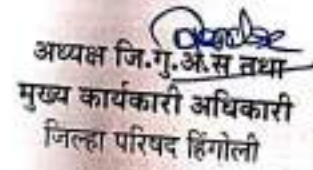 अध्यक्ष जि.गु.अ.स तथा
मुख्य कार्यकारी अधिकारी
जिल्हा परिषद हिंगोली